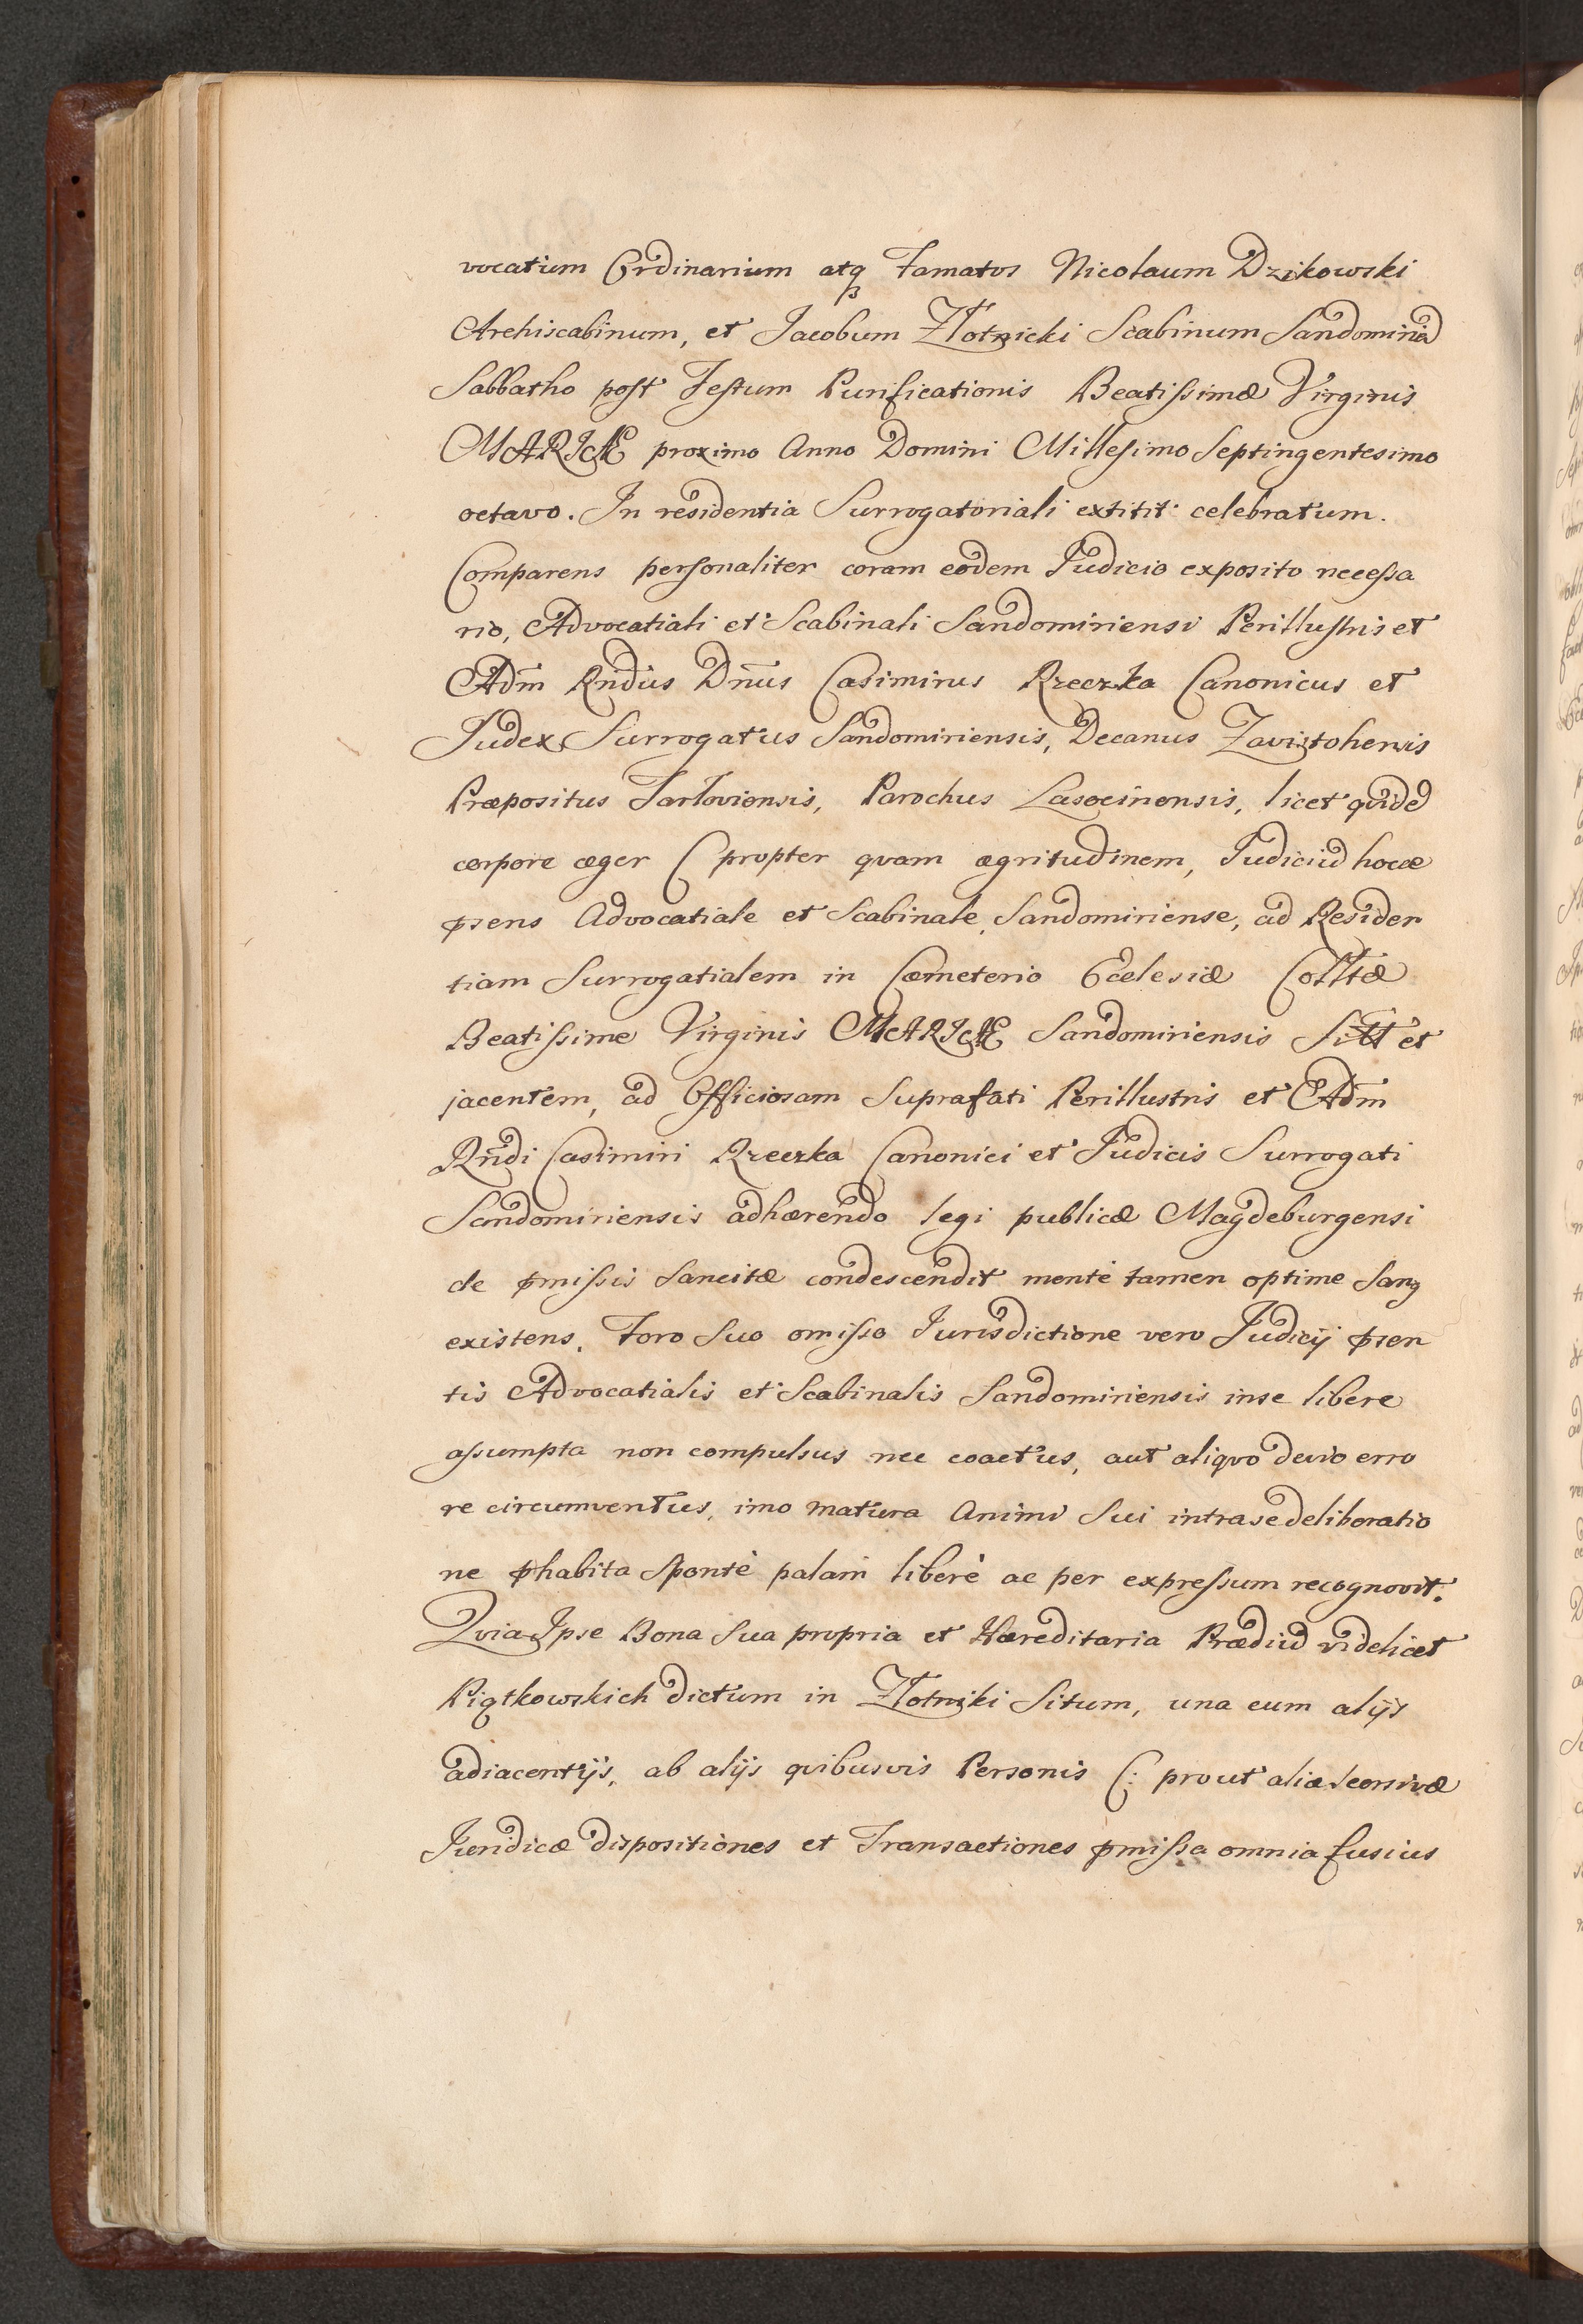 vocatium Ordinarium atq̃ Famatos Nicolaum Dzikowski
Archiscabinum, et Jacobum Złotnicki Scabinum
Sabbatho post Festum Purificationis Beatissimæ Virginis
MARIÆ proximo Anno Domini Millesimo Septingentesimo
octavo. In residentia Surrogatoriali extitit celebratum.
Comparens personaliter coram eodem Judicio exposito necessa
rio, Advocatiali et Scabinali Sandomiriensi Perillustris et
Adm̃ Rñdus Dñus Casimirus Rzeczka Canonicus et
Judex Surrogatus Sandomiriensis, Decanus
Præpositus Tarloviensis, Parochus Lasocinensis, licet qvidẽ
corpore æger ( propter qvam ægritudinem, Judiciũ hocce
p̃sens Advocatiale et Scabinale Sandomiriense, ad Residen
tiam Surrogatialem in Cæmeterio Ecclesiæ Colltæ
Beatissime Virginis MARIÆ Sandomiriensis et
jacentem, ad Officiosam Suprafati Perillustris et Adm̃
Rñdi Casimiri Rzeczka Canonici et Judicis Surrogati
Sandomiriensis adhærendo legi publicæ Magdeburgensi
de p̃missis Sancitæ condescendit mente tamen optime Sanꝰ
existens, Foro Suo omisso Jurisdictione vero Judicij p̃sen
tis Advocatialis et Scabinalis Sandomiriensis inse libere
assumpta non compulsus nec coactus, aut aliqvo devio erro
re circumventus, imo matura Animi Sui intrase deliberatio
ne p̃habita Spontè palam liberè ac per expressum recognovit.
Qvia Ipse Bona Sua propria et Hæreditaria Prædiũ videlicet
Piątkowskich dictum in Złotniki Situm, una cum alijs
adiacentijs, ab alijs qvibusvis Personis (: prout aliæ seorsivæ
Juridicæ dispositiones et Transactiones p̃missa omnia fusius